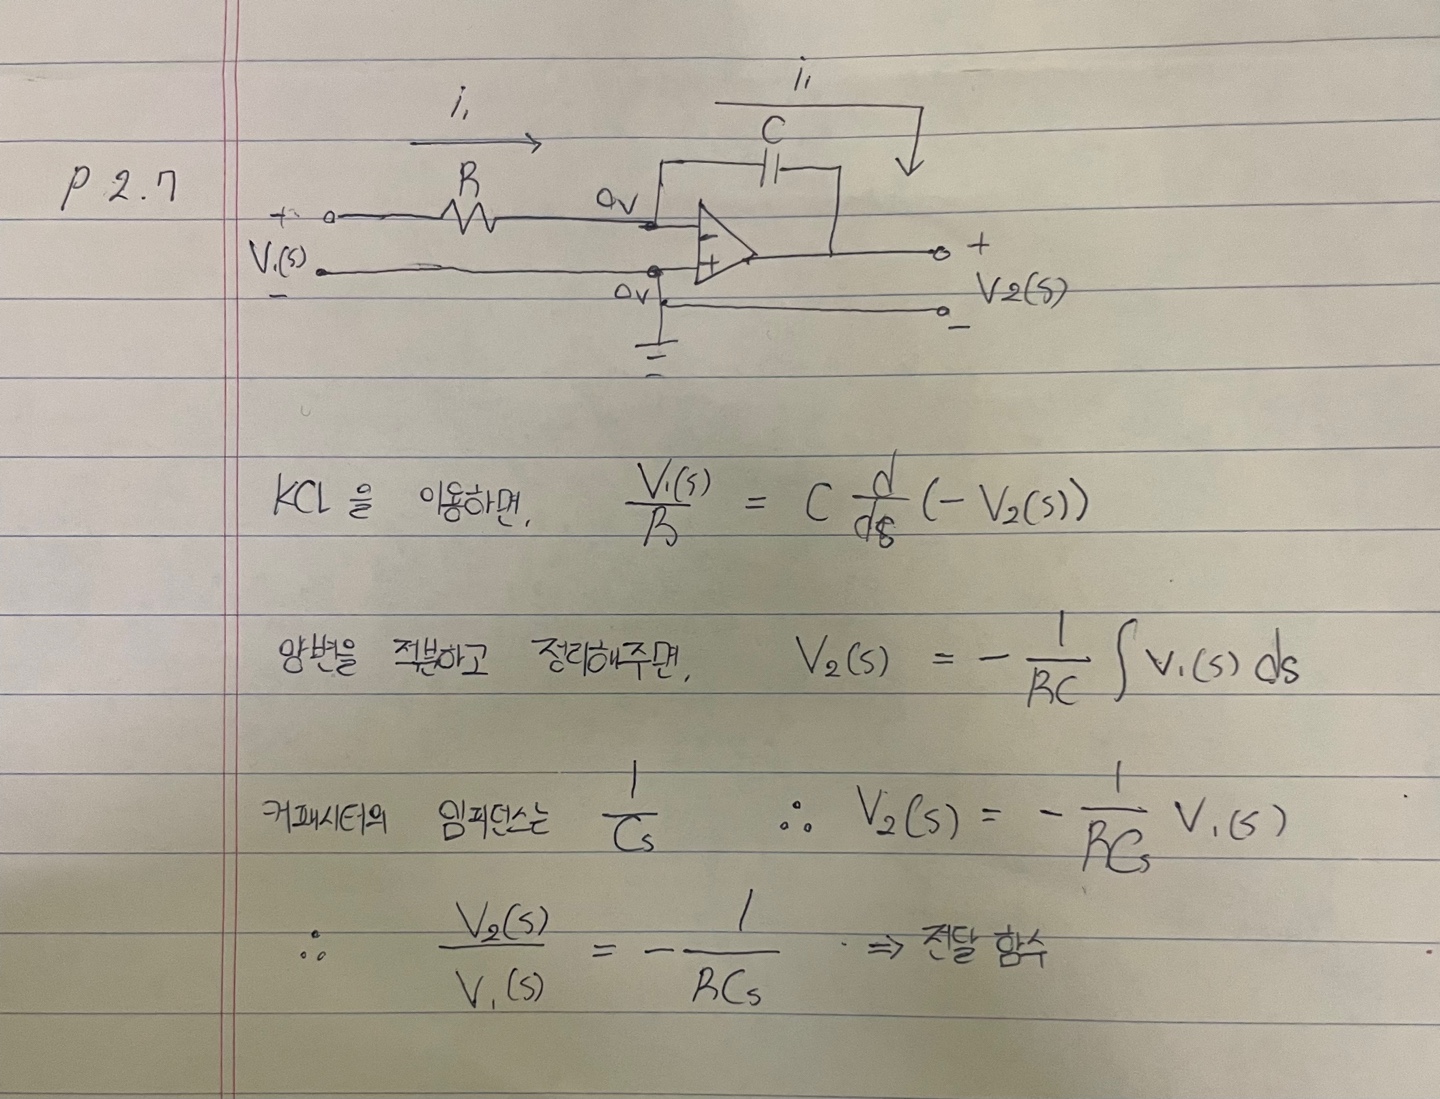 i₁
i₁
C
P 2.7
R
0V
+
V₁(s)
-
-
+
0V
+
V2(s)
-
KCL을 이용하면, V₁(s)/R = C d/ds (- V₂(s))
양변을 적분하고 정리해주면, V₂(s) = - 1/RC ∫ V₁(s) ds
커패시터의 임피던스는 1/Cs ∴ V₂(s) = - 1/RCs V₁(s)
∴ V₂(s)/V₁(s) = - 1/RCs ⇒ 전달 함수